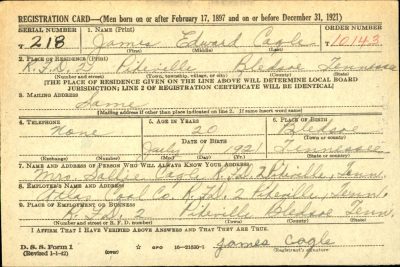 REGISTRATION CARD—(Men born on or after February 17, 1897 and on or before December 31, 1921)
SERIAL NUMBER 1. NAME (Print) ORDER NUMBER
218 James Edward Cagle 10143
(First) (Middle) (Last)
2. PLACE OF RESIDENCE (Print)
R.F.D. 2, Pikeville Bledsoe Tennessee
(Number and street) (Town, township, village, or city) (County) (State)
[THE PLACE OF RESIDENCE GIVEN ON THE LINE ABOVE WILL DETERMINE LOCAL BOARD
JURISDICTION; LINE 2 OF REGISTRATION CERTIFICATE WILL BE IDENTICAL]
3. MAILING ADDRESS
Same
[Mailing address if other than place indicated on line 2. If same insert word same]
4. TELEPHONE 5. AGE IN YEARS 6. PLACE OF BIRTH
None 20 Bledsoe
DATE OF BIRTH (Town or county)
July 1 1921 Tennessee
(Exchange) (Number) (Mo.) (Day) (Yr.) (State or country)
7. NAME AND ADDRESS OF PERSON WHO WILL ALWAYS KNOW YOUR ADDRESS
Mrs. Sallie Cagle R.Fd. 2 Pikeville, Tenn.
8. EMPLOYER'S NAME AND ADDRESS
Coal Co. R.Fd. 2 Pikeville, Tenn.
9. PLACE OF EMPLOYMENT OR BUSINESS
R.Fd. 2 Pikeville Bledsoe Tenn.
(Number and street or R. F. D. number) (Town) (County) (State)
I AFFIRM THAT I HAVE VERIFIED ABOVE ANSWERS AND THAT THEY ARE TRUE.
D. S. S. Form 1 GPO 16—21630-1 James Cagle
(Revised 1-1-42) (Registrant's signature)